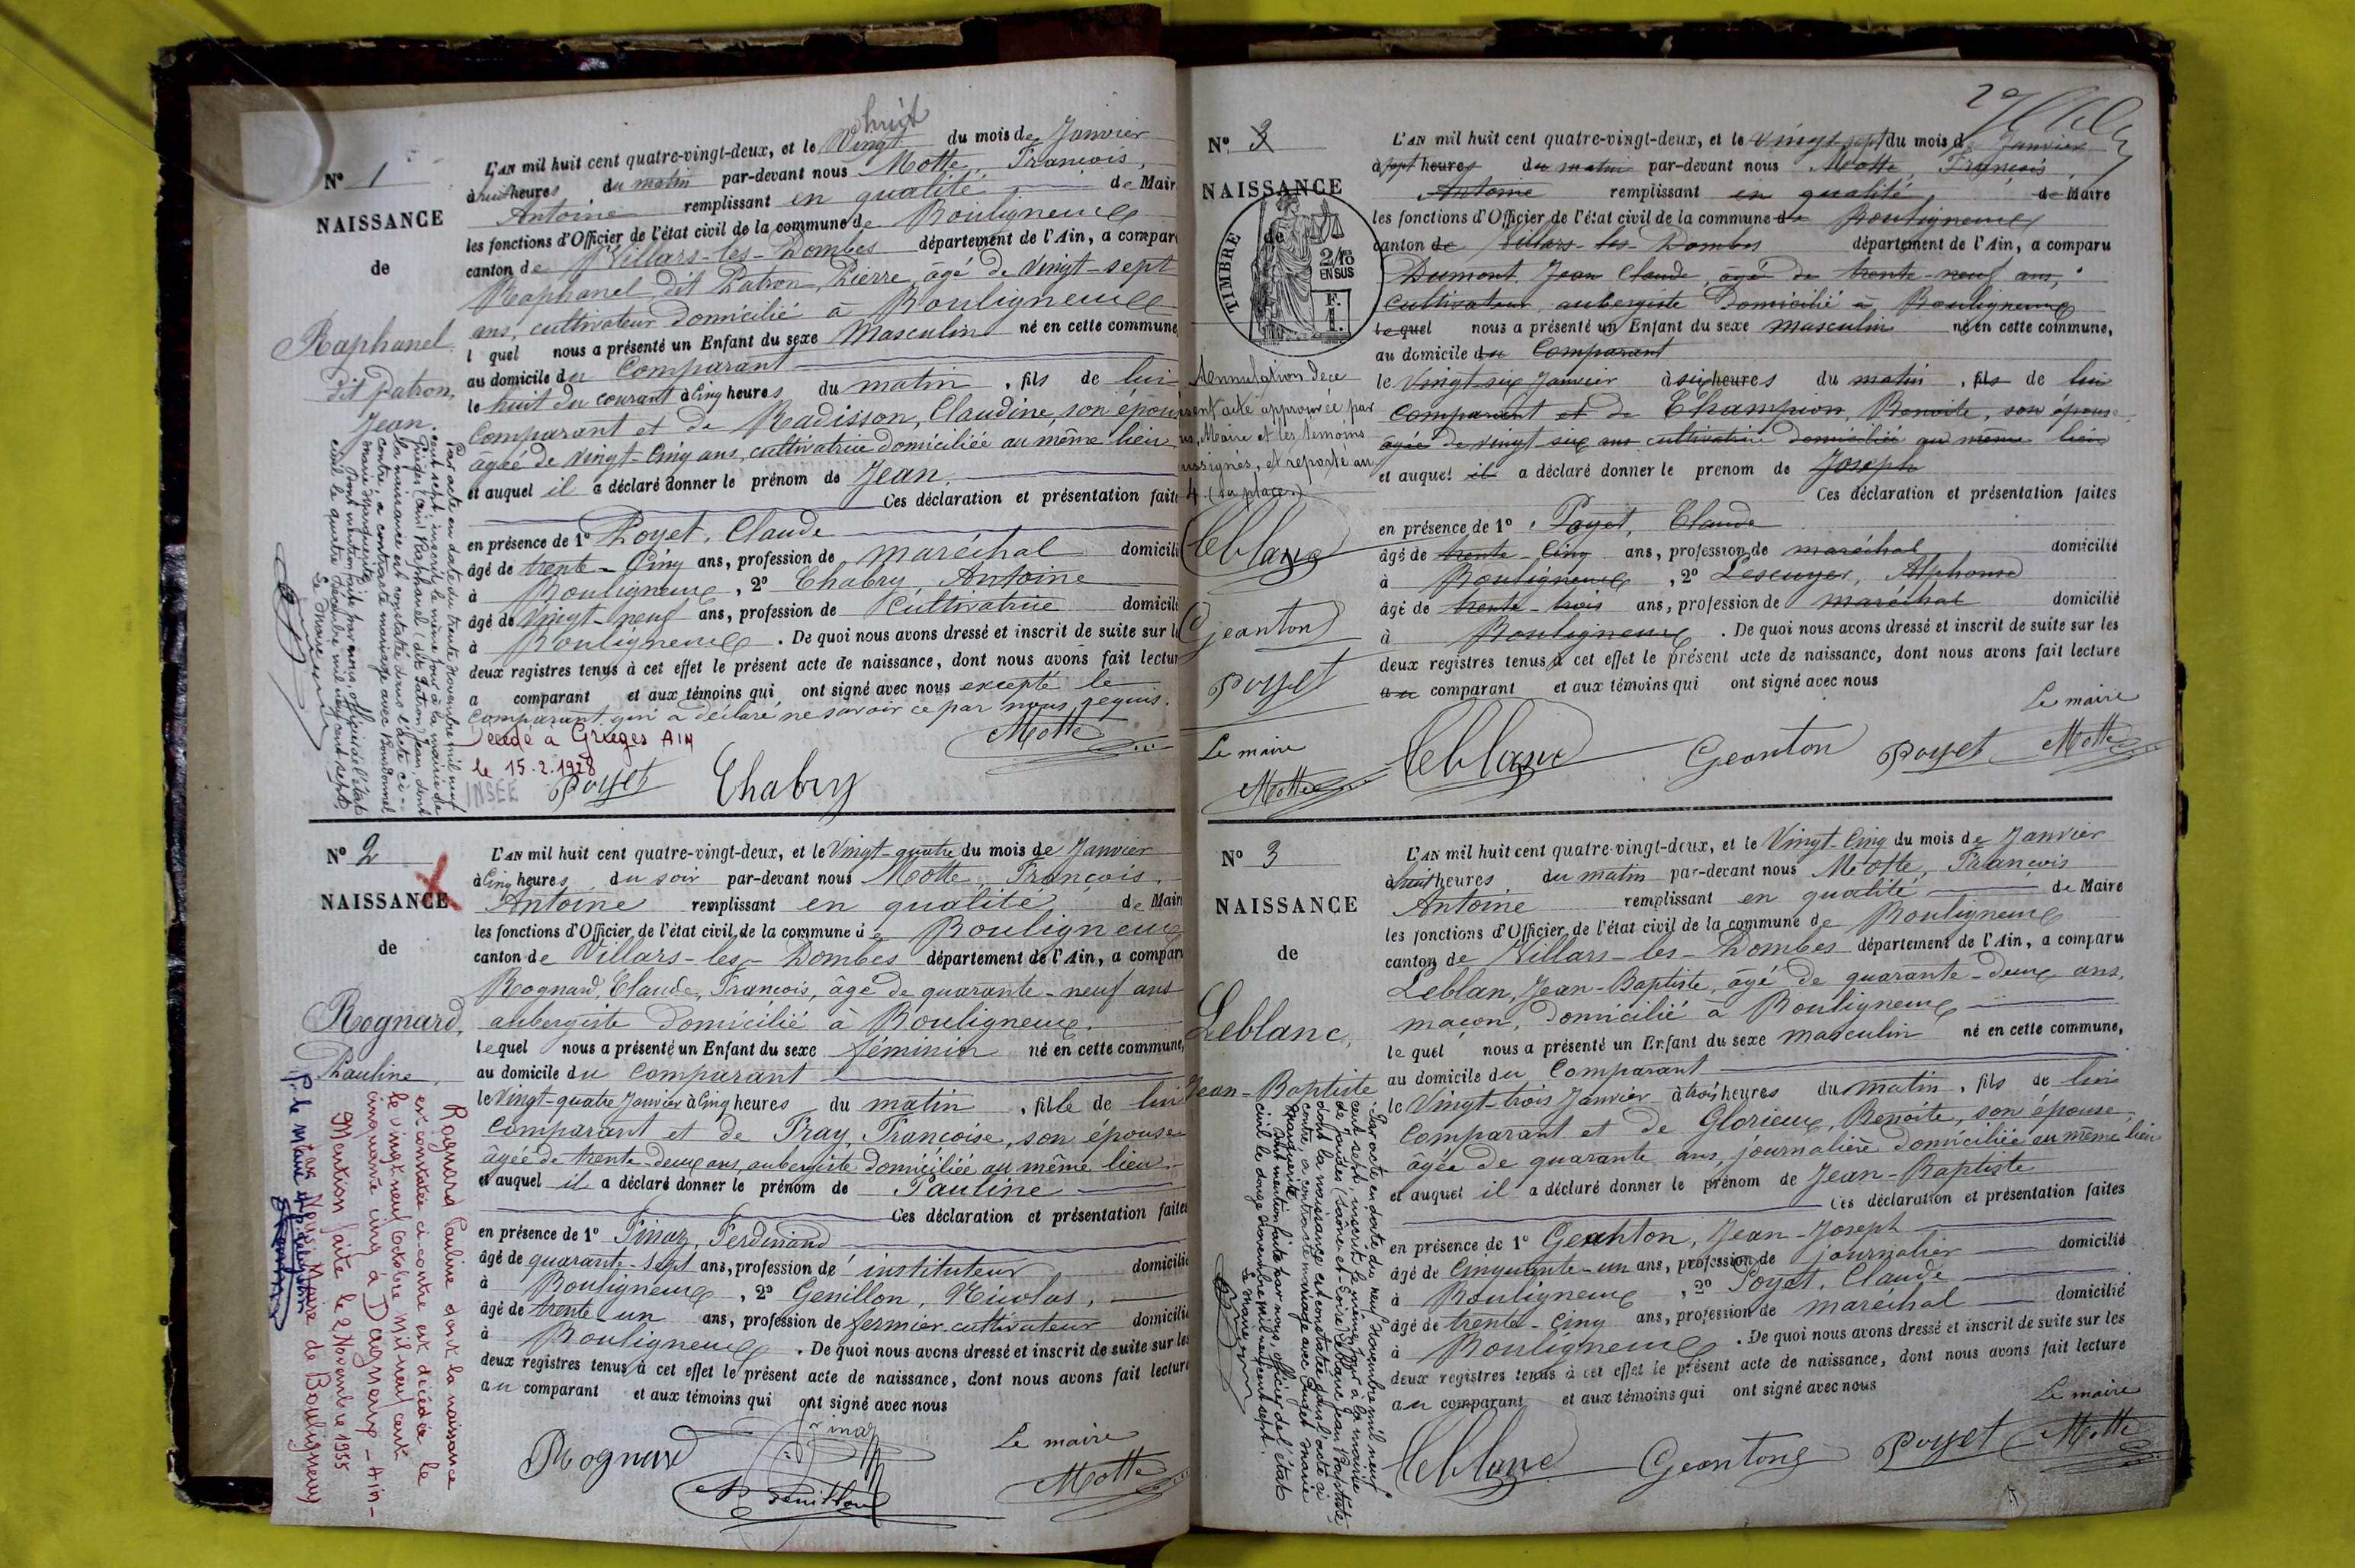 huit
L'AN mil huit cent quatre-vingt-deux, et le Vingt du mois de Janvier
N° 1
à huit heures du matin par-devant nous Motte, François,
NAISSANCE
Antoine remplissant en qualité de Mair
les fonctions d'Officier de l'état civil de la commune de Bouligneux
de
canton de Villars-les-Dombes département de l'Ain, a compar
Raphanel dit Patron, Pierre, âgé de vingt-sept
ans, cultivateur domicilié à Bouligneux
Raphanel
dit Patron,
Jean.
l quel nous a présenté un Enfant du sexe Masculin né en cette commune,
au domicile du Comparant
le huit du courant à Cinq heures du matin, fils de lui
Comparant et de Radisson, Claudine, son épous
âgée de vingt-Cinq ans, cultivatrice domiciliée au même lieu
et auquel il a déclaré donner le prénom de Jean.
Ces déclaration et présentation faite
en présence de 1° Poyet, Claude
âgé de trente-Cinq ans, profession de maréchal domicili
à Bouligneux, 2° Chabry, Antoine
âgé de Vingt-neuf ans, profession de Cultivatrice domicili
à Bouligneux. De quoi nous avons dressé et inscrit de suite sur le
deux registres tenus à cet effet le présent acte de naissance, dont nous avons fait lectur
a comparant et aux témoins qui ont signé avec nous excepté le
Comparant qui a déclaré ne savoir ce par nous requis.
Par acte en date du trente Novembre mil neuf
cent sept, inscrit le même jour à la mairie de
Priay (Ain) Raphanel (dit Patron) Jean, dont
la naissance est constatée dans l'acte ci-
contre, a contracté mariage avec Bourdonnel
Marie Marguerite.
Dont mention faite par nous officier de l'état
civil le quatre décembre mil neuf cent sept.
Le Maire
Décédé à Grièges AIN
le 15.2.1928
INSEE
Motte
Poyet
Chabry
N° 2
NAISSANCE
de
Rognard,
Pauline,
L'AN mil huit cent quatre-vingt-deux, et le Vingt-quatre du mois de Janvier
à Cinq heures du soir par-devant nous Motte, François,
Antoine remplissant en qualité de Mair
les fonctions d'Officier de l'état civil de la commune de Bouligneux
canton de Villars-les-Dombes département de l'Ain, a compar
Rognard, Claude, François, âgé de quarante-neuf ans
aubergiste domicilié à Bouligneux.
lequel nous a présenté un Enfant du sexe féminin né en cette commune,
au domicile du Comparant
le Vingt-quatre Janvier à Cinq heures du matin, fille de lui
Comparant et de Pray, Françoise, son épouse
âgée de trente-deux ans, aubergiste domiciliée au même lieu.
et auquel il a déclaré donner le prénom de Pauline
Ces déclaration et présentation faites
en présence de 1° Finaz, Ferdinand
âgé de quarante-sept ans, profession de instituteur domicilié
à Bouligneux, 2° Genillon, Nicolas,
âgé de trente un ans, profession de fermier-cultivateur domicilié
à Bouligneux. De quoi nous avons dressé et inscrit de suite sur les
deux registres tenus à cet effet le présent acte de naissance, dont nous avons fait lecture
au comparant et aux témoins qui ont signé avec nous
Rognard Pauline dont la naissance
est constatée ci-contre est décédée le
le vingt neuf octobre mil neuf cent
cinquante cinq à Dagneux - Ain -
Mention faite le 2 Novembre 1955
par Nous Maire de Bouligneux
P. le Maire
Rognard
Finaz
Le maire
Genillon
Motte
N° 3
NAISSANCE
de
TIMBRE
2/10
EN SUS
F.
1.
L'AN mil huit cent quatre-vingt-deux, et le vingt sept du mois d Janvier
à sept heures du matin par-devant nous Motte, François
Antoine remplissant en qualité de Maire
les fonctions d'Officier de l'état civil de la commune de Bouligneux
canton de Villars-les Dombes département de l'Ain, a comparu
Dumont, Jean Claude, âgé de trente-neuf ans,
cultivateur aubergiste domicilié à Bouligneux
lequel nous a présenté un Enfant du sexe masculin né en cette commune,
au domicile du Comparant
le Vingt six Janvier à six heures du matin, fils de lui
comparant et de Champion, Benoite, son épouse
âgée de vingt six ans cultivatrice domiciliée au même lieu
et auquel il a déclaré donner le prenom de Joseph
Ces déclaration et présentation faites
en présence de 1° Poyet, Claude
âgé de trente-Cinq ans, profession de maréchal domicilié
à Bouligneux, 2° Lescuyer, Alphonse
âgé de trente-trois ans, profession de maréchal domicilié
à Bouligneux. De quoi nous avons dressé et inscrit de suite sur les
deux registres tenus à cet effet le présent acte de naissance, dont nous avons fait lecture
au comparant et aux témoins qui ont signé avec nous
Annulation de ce
sent acte approuvée par
us, Maire et les témoins
ussignés, et reporté au
4. (sa place.)
Leblanc
Geanton
Poyet
Le maire
Motte
Le maire
Leblanc
Geanton
Poyet
Motte
N° 3
NAISSANCE
de
Leblanc,
Jean-Baptiste
L'AN mil huit cent quatre-vingt-deux, et le Vingt-Cinq du mois de Janvier
à huit heures du matin par-devant nous Motte, François
Antoine remplissant en qualité de Maire
les fonctions d'Officier de l'état civil de la commune de Bouligneux
canton de Villars-les-Dombes département de l'Ain, a comparu
Leblan, Jean-Baptiste, âgé de quarante-deux ans,
maçon, domicilié à Bouligneux
le quel nous a présenté un Enfant du sexe masculin né en cette commune,
au domicile du Comparant
le Vingt-trois Janvier à trois heures du matin, fils de lui
Comparant et de Glorieux, Benoite, son épouse,
âgée de quarante ans, journalière domiciliée au même lieu
et auquel il a déclaré donner le prénom de Jean-Baptiste
Ces déclaration et présentation faites
en présence de 1° Geanton, Jean-Joseph
âgé de Cinquante-un ans, profession de journalier domicilié
à Bouligneux, 2° Poyet, Claude
âgé de trente-Cinq ans, profession de maréchal domicilié
à Bouligneux. De quoi nous avons dressé et inscrit de suite sur les
deux registres tenus à cet effet le présent acte de naissance, dont nous avons fait lecture
au comparant et aux témoins qui ont signé avec nous
Par acte en date du neuf Novembre mil neuf
cent sept, inscrit le même jour à la mairie
de Joudes (Saône-et-Loire) Leblanc Jean Baptiste
dont la naissance est constatée dans l'acte ci
contre, a contracté mariage avec Marie
Marguerite.
Dont mention faite par nous officier de l'état
civil le douze Novembre mil neuf cent sept.
Le Maire
Le maire
Leblanc
Geanton
Poyet
Motte